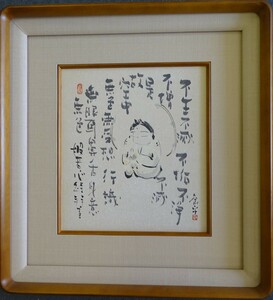 不生不滅 不垢不浄
不増
不減
是
故
空中
無色無受想 行識
無眼耳鼻舌身意
無色 声香味触法